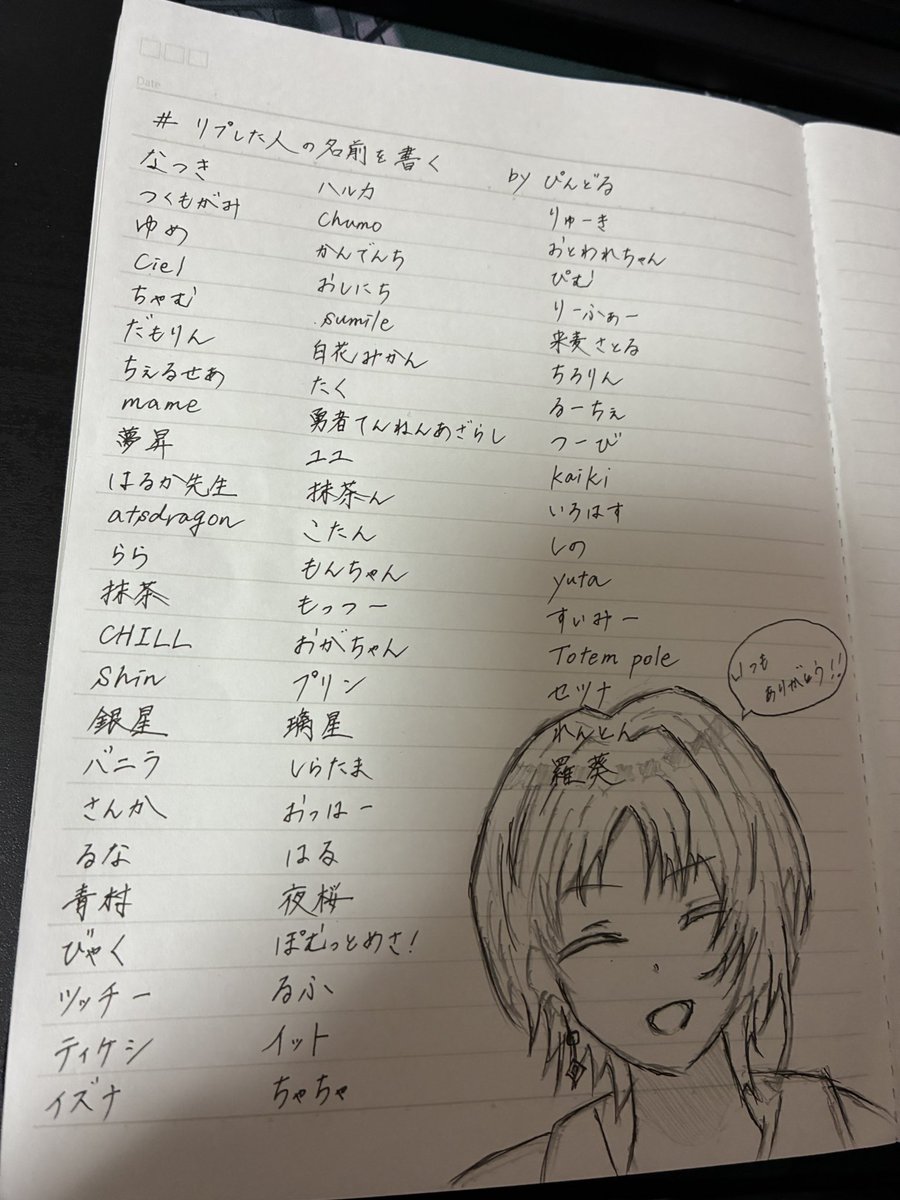 Date
# リプした人の名前を書く by ぴんどる
なっき
つくもがみ
ゆめ
Ciel
ちゃむ
だもりん
ちぇるせあ
mame
夢昇
はるか先生
atsdragon
らら
抹茶
CHILL
Shin
銀星
バニラ
さんか
るな
青村
びゃく
ツッチー
ティケシ
イズナ
ハルカ
Chumo
かんでんち
おしにち
sumile
白花みかん
たく
勇者てんねんあざらし
ユユ
抹茶ん
こたん
もんちゃん
もっつー
おがちゃん
プリン
璃星
しらたま
おっはー
はる
夜桜
ぽむっとめさ!
るふ
イット
ちゃちゃ
りゅーき
おとわれちゃん
ぴむ
りーふぁー
来麦さとる
ちろりん
るーちぇ
つーび
kaiki
いろはす
しの
yuta
すいみー
Totem pole
セツナ
れんとん
羅葵
いつも
ありがとう!!